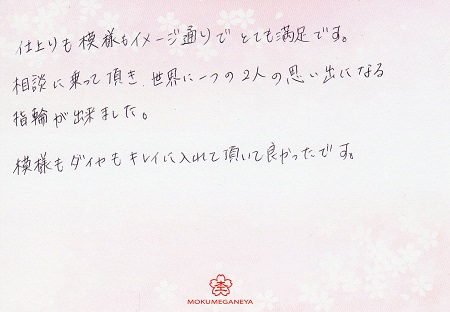 仕上りも模様もイメージ通りでとても満足です。
相談に乗って頂き、世界に一つの2人の思い出になる
指輪が出来ました。
模様もダイヤもキレイに入れて頂いて良かったです。
MOKUMEGANEYA